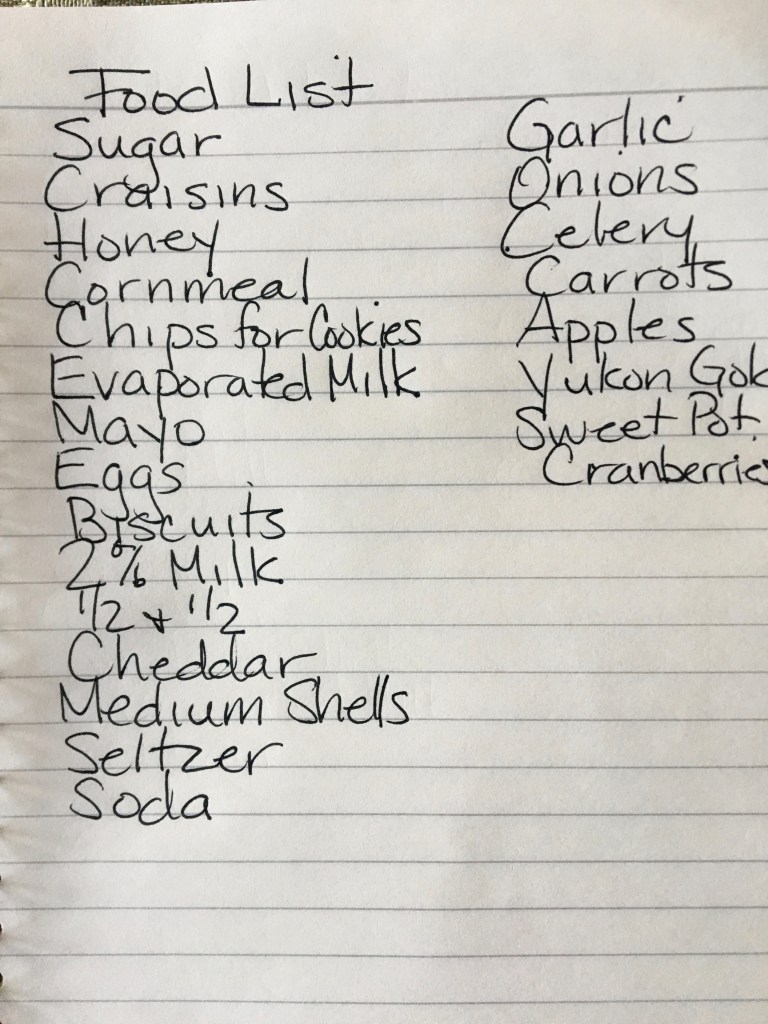 Food List
Sugar
Craisins
Honey
Cornmeal
Chips for Cookies
Evaporated Milk
Mayo
Eggs
Biscuits
2% Milk
1/2 + 1/2
Cheddar
Medium Shells
Seltzer
Soda
Garlic
Onions
Celery
Carrots
Apples
Yukon Gol
Sweet Pot.
Cranberries